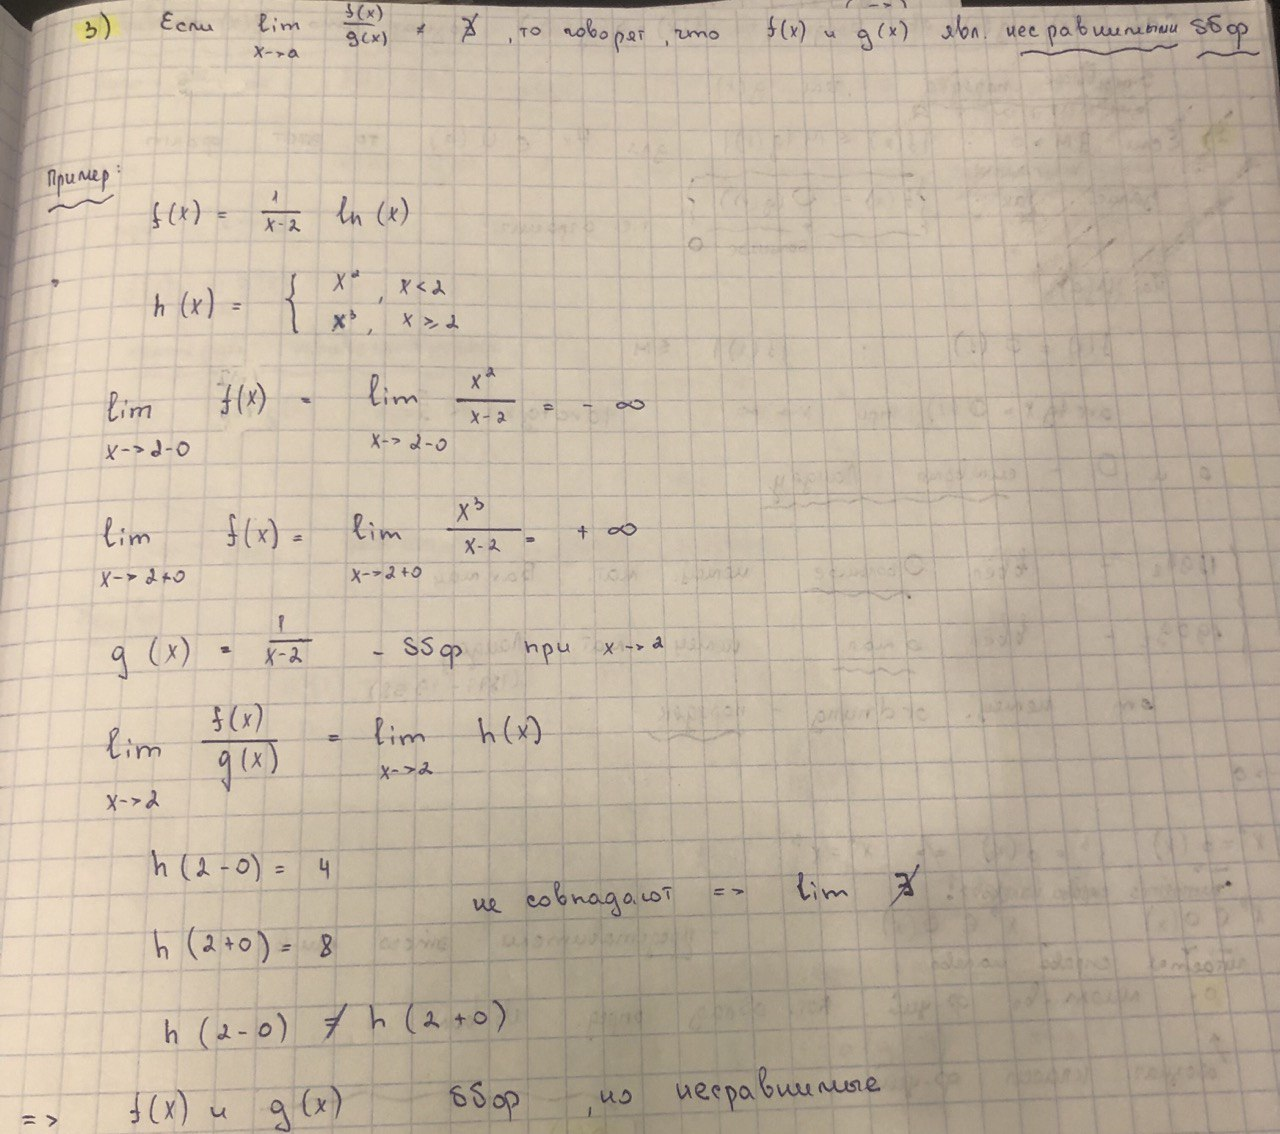 3) Если lim x->a f(x)/g(x) ≠ ∄, то говорят, что f(x) и g(x) явл. несравнимыми ббф
Пример:
f(x) = 1/(x-2) ln(x)
h(x) = { x², x<2
x³, x ⩾ 2
lim x->2-0 f(x) = lim x->2-0 x²/(x-2) = -∞
lim x->2+0 f(x) = lim x->2+0 x³/(x-2) = +∞
g(x) = 1/(x-2) - ббф при x->2
lim x->2 f(x)/g(x) = lim x->2 h(x)
h(2-0) = 4
не совпадают => lim ∄
h(2+0) = 8
h(2-0) ≠ h(2+0)
=> f(x) и g(x) ббф, но несравнимые